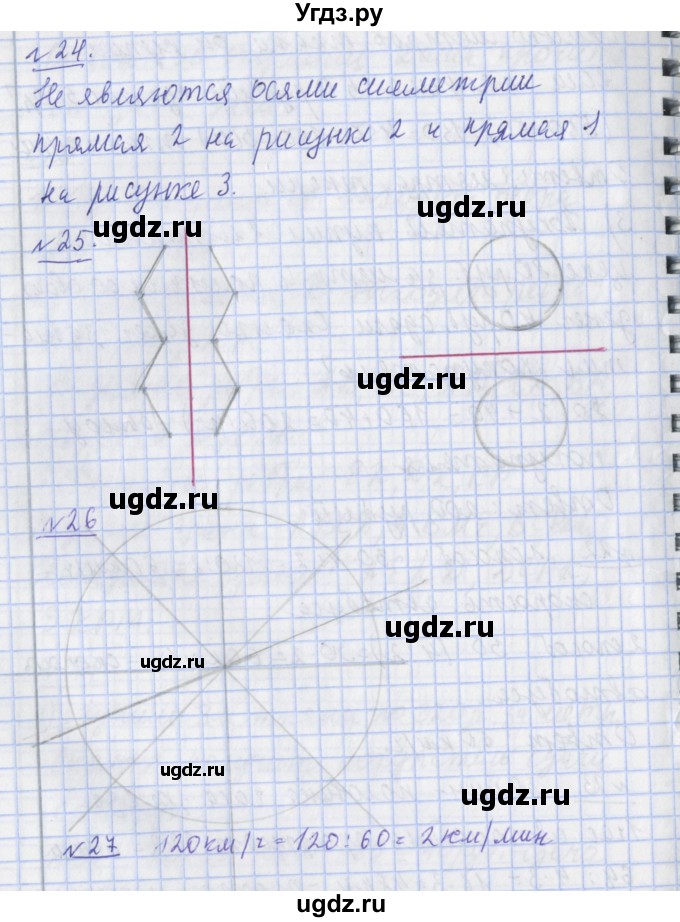 Угдз.ру
№24.
Не являются осями симметрии
прямая 2 на рисунке 2 и прямая 1
на рисунке 3.
ugdz.ru
№25.
ugdz.ru
ugdz.ru
№26
ugdz.ru
ugdz.ru
ugdz.ru
ugdz.ru
№27 120км/ч = 120 : 60 = 2 км/мин
ugdz.ru